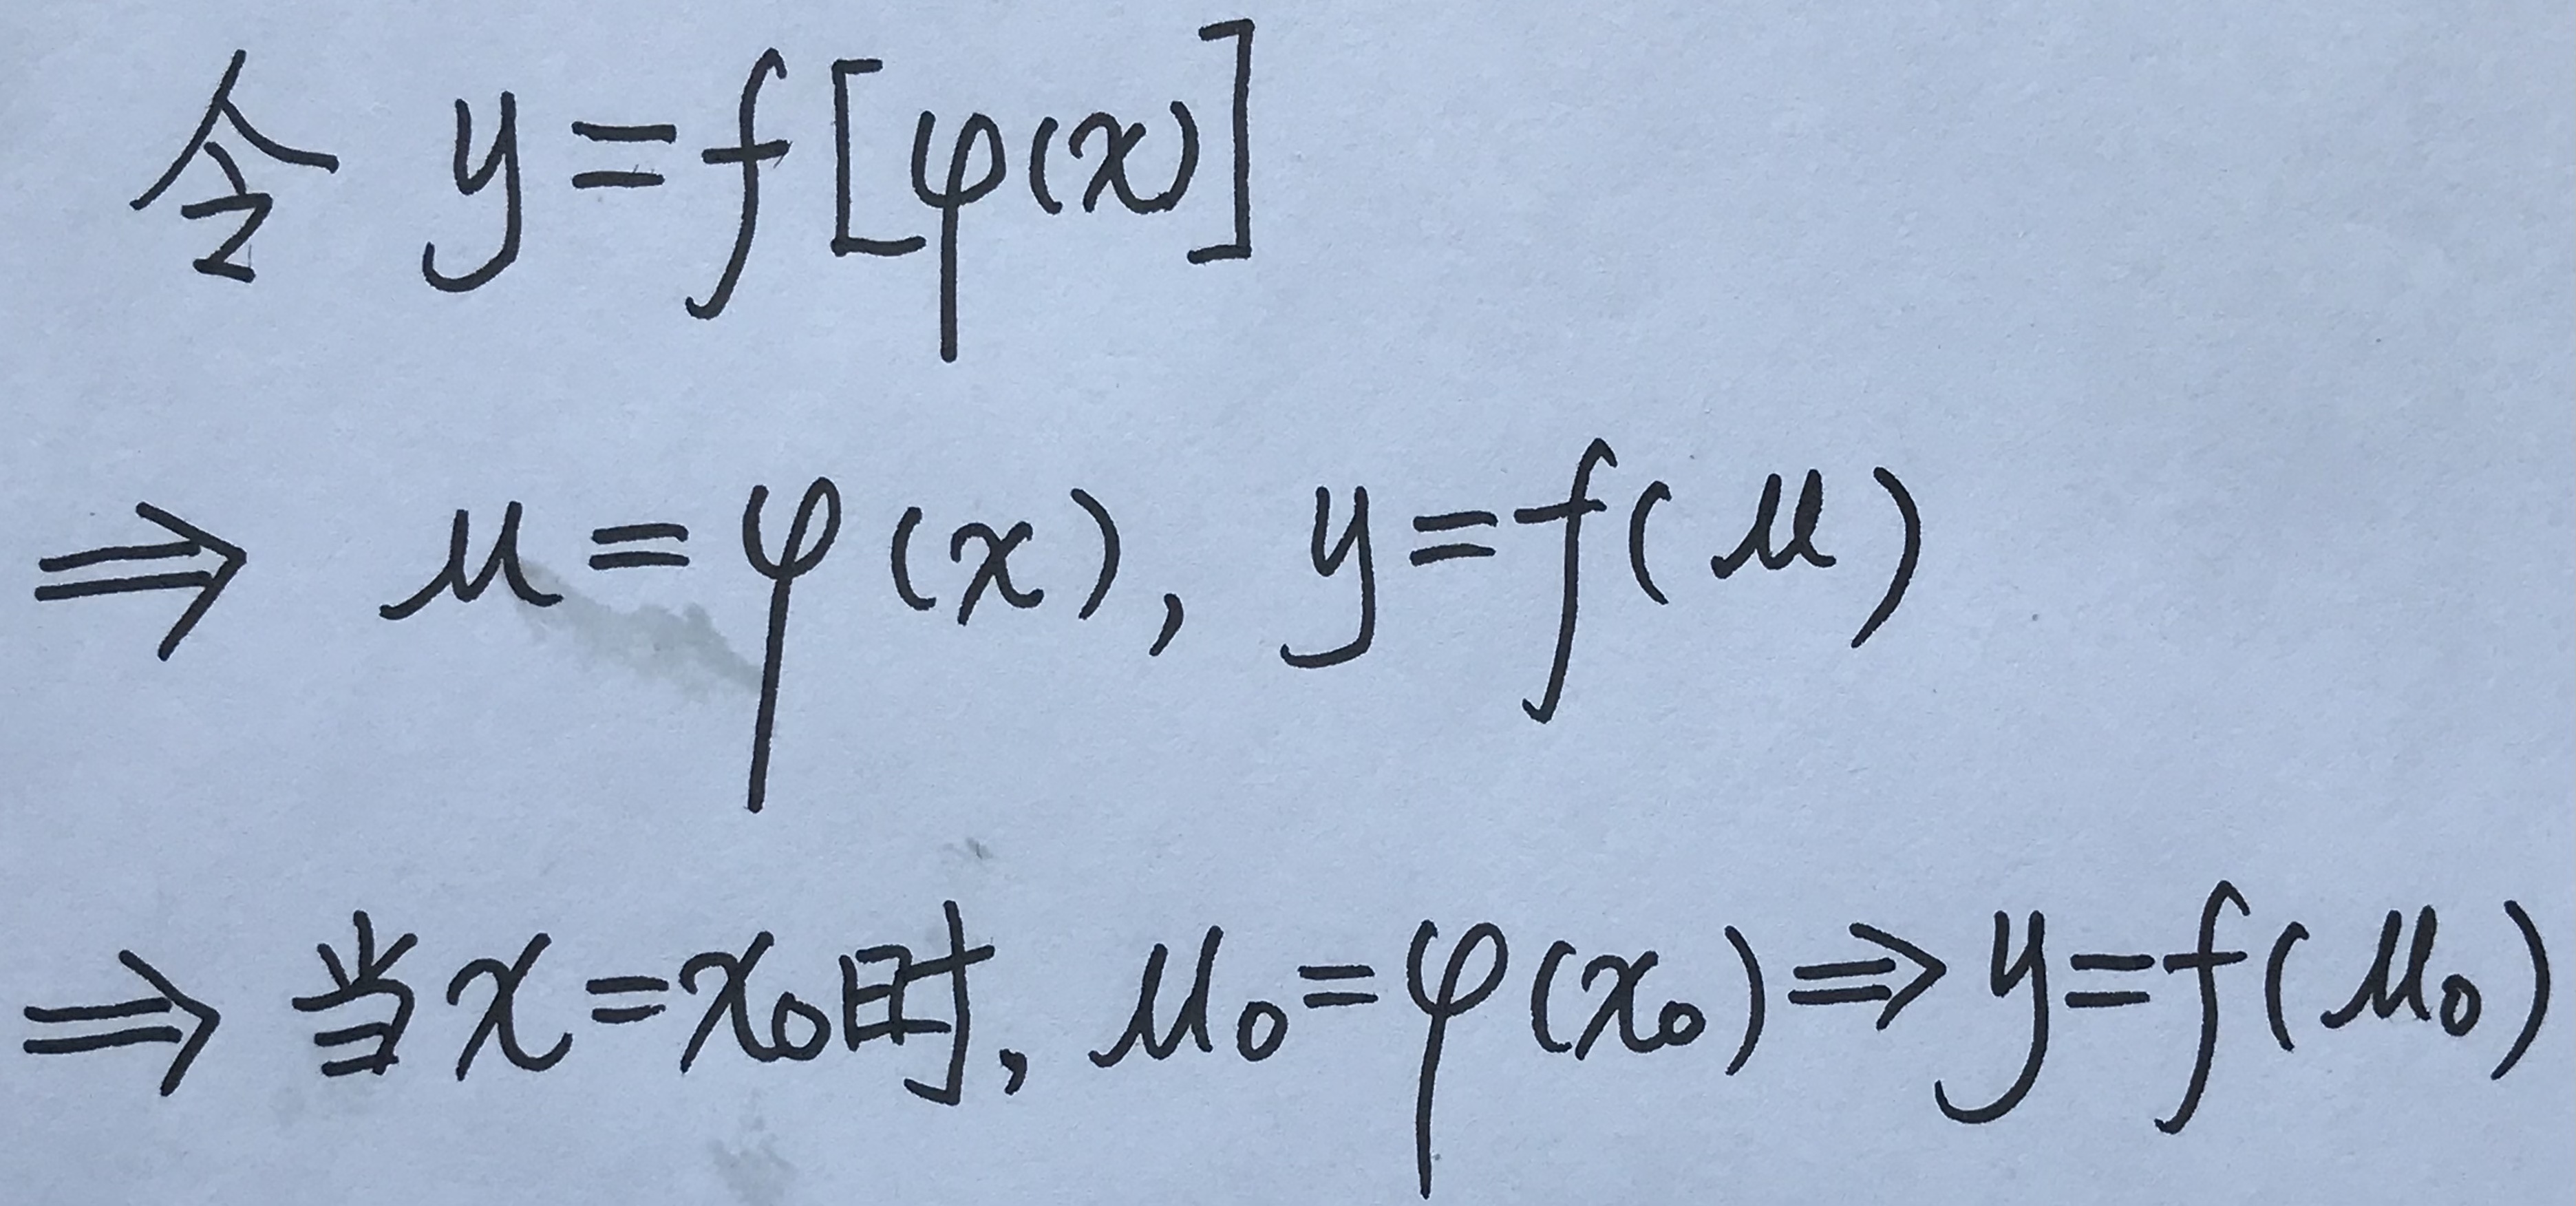 令 y=f[φ(x)]
⇒ μ=φ(x), y=f(μ)
⇒ 当x=x₀时, μ₀=φ(x₀)⇒y=f(μ₀)